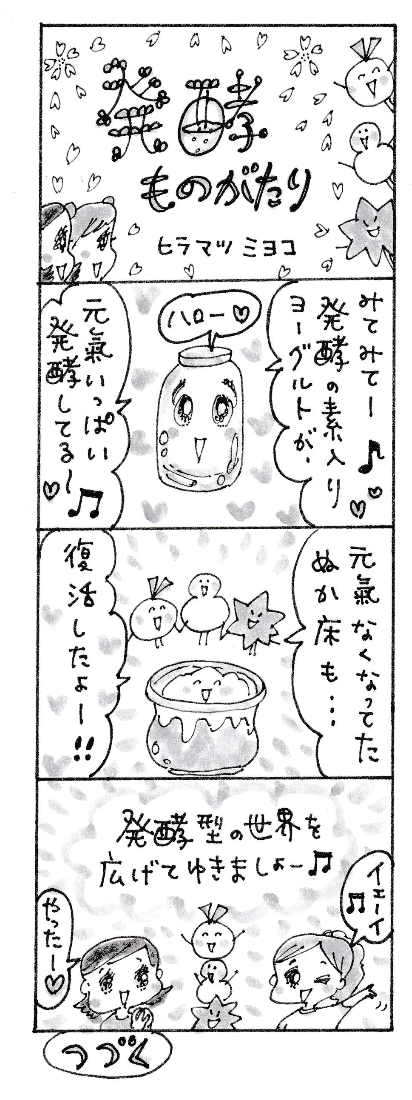 発酵
ものがたり
ヒラマツ ミヨコ
みてみてー♪
発酵の素入り
ヨーグルトが、
ハロー♡
元氣いっぱい
発酵してる〜♫
元氣なくなってた
ぬか床も…
復活したよー!!
発酵型の世界を
広げてゆきましょー♫
イェーイ♫
やったー♡
つづく